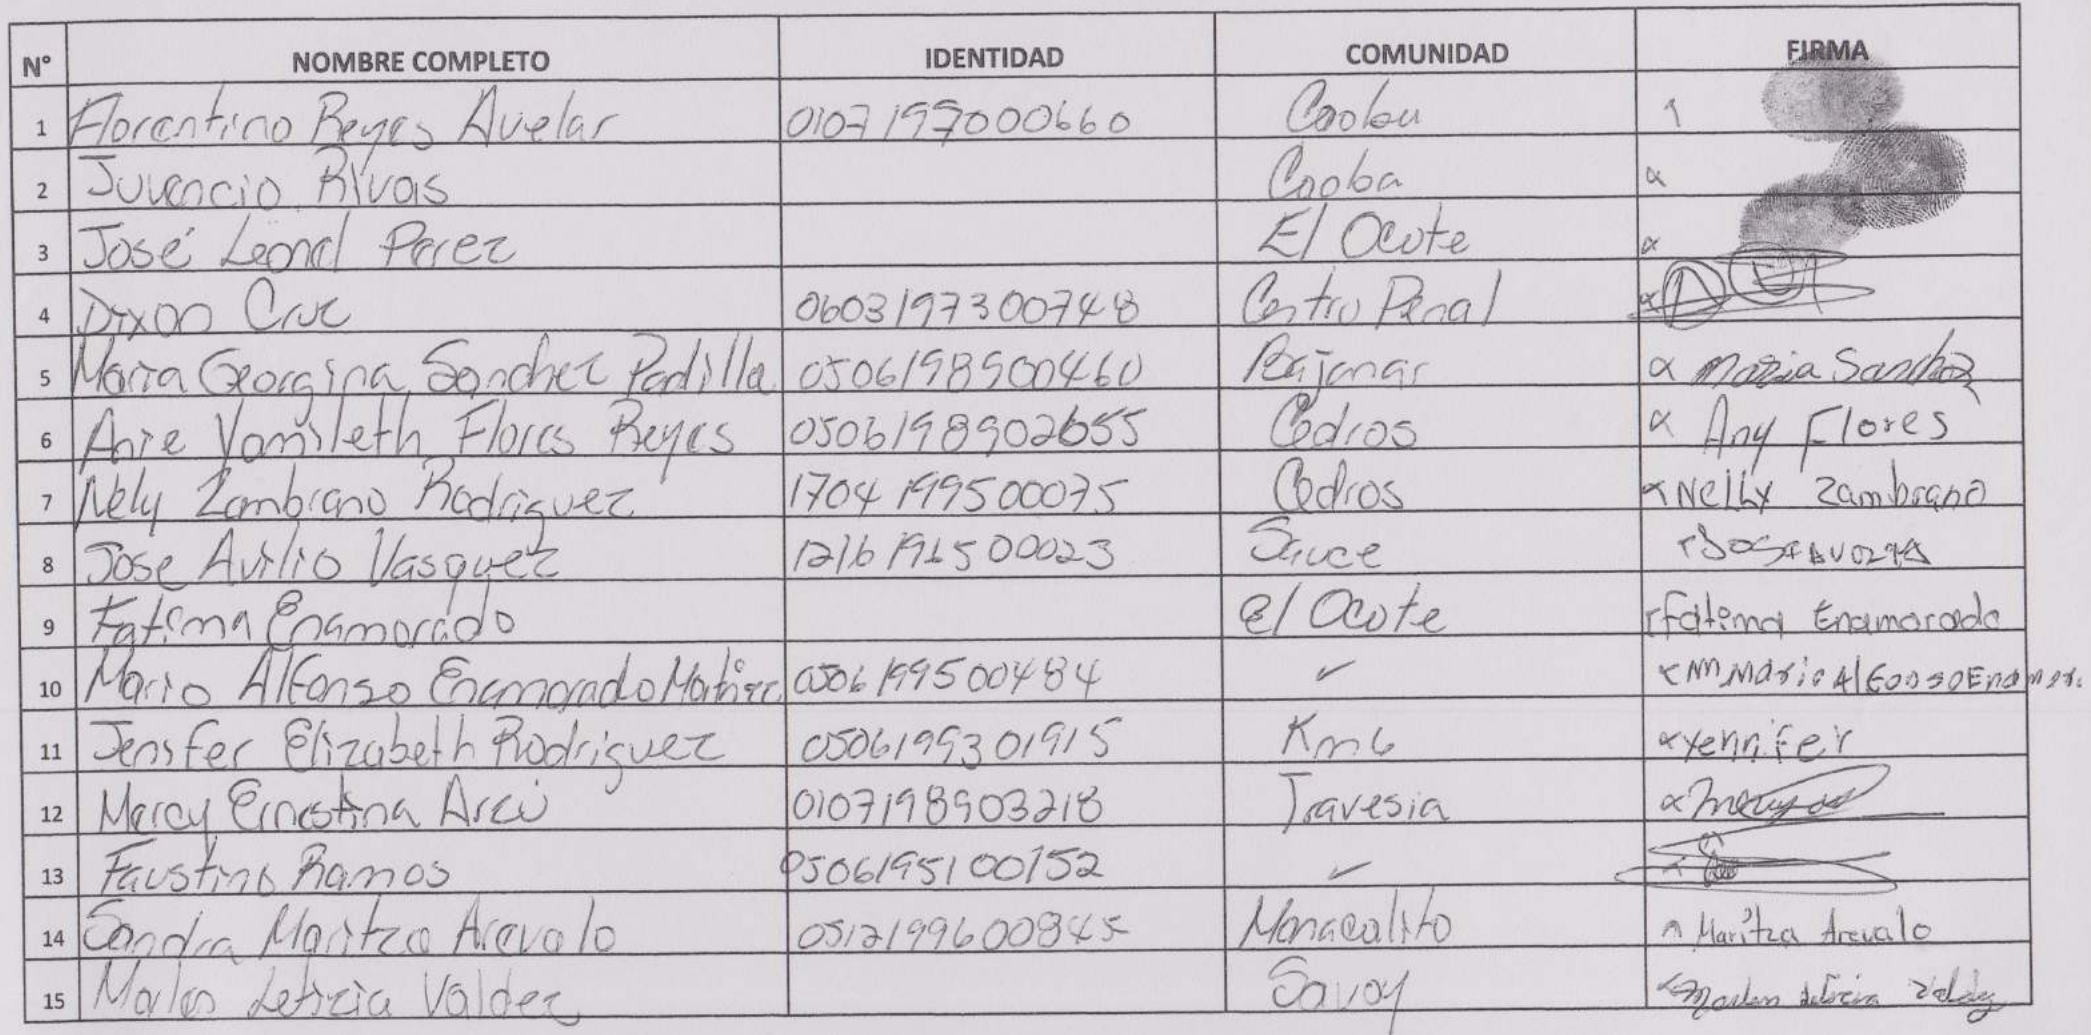 N° NOMBRE COMPLETO IDENTIDAD COMUNIDAD FIRMA
1 Florentino Reyes Avelar 0107197000660 Caoba
2 Juvencio Rivas Caoba
3 José Leonel Perez El Ocote
4 Dixon Cruz 0603197300748 Centro Penal
5 Maria Georgina Sanchez Padilla 0506198900460 Bajamar Maria Sanchez
6 Anie Yamileth Flores Reyes 0506198902655 Cedros Any Flores
7 Nely Zambrano Rodriguez 1704199500075 Cedros Nelly Zambrano
8 Jose Avilio Vasquez Sauce
9 Fatima Enamorado El Ocote Fatima Enamorado
10 Mario Alfonso Enamorado 0506199500484 ✓ Mario Alfonso
11 Jenifer Elizabeth Rodriguez 0506199301915 Km6 Yennifer
12 Mercy Ernestina Arzú 0107198903218 Travesia
13 Faustino Ramos 0506195100152 ✓
14 Sandra Maritza Arevalo 0512199600845 Monacalito Maritza Arevalo
15 Marlen Letizia Valdez Savoy Marlen Leticia Valdez